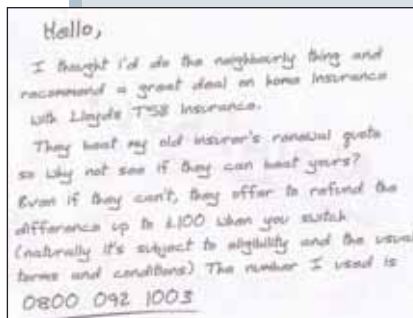 Hello,
I thought i'd do the neighbourly thing and
recommend a great deal on home insurance
with Lloyds TSB Insurance.
They beat my old insurer's renewal quote
so why not see if they can beat yours?
Even if they can't, they offer to refund the
difference up to £100 when you switch
(naturally it's subject to eligibility and the usual
terms and conditions) The number I used is
0800 092 1003